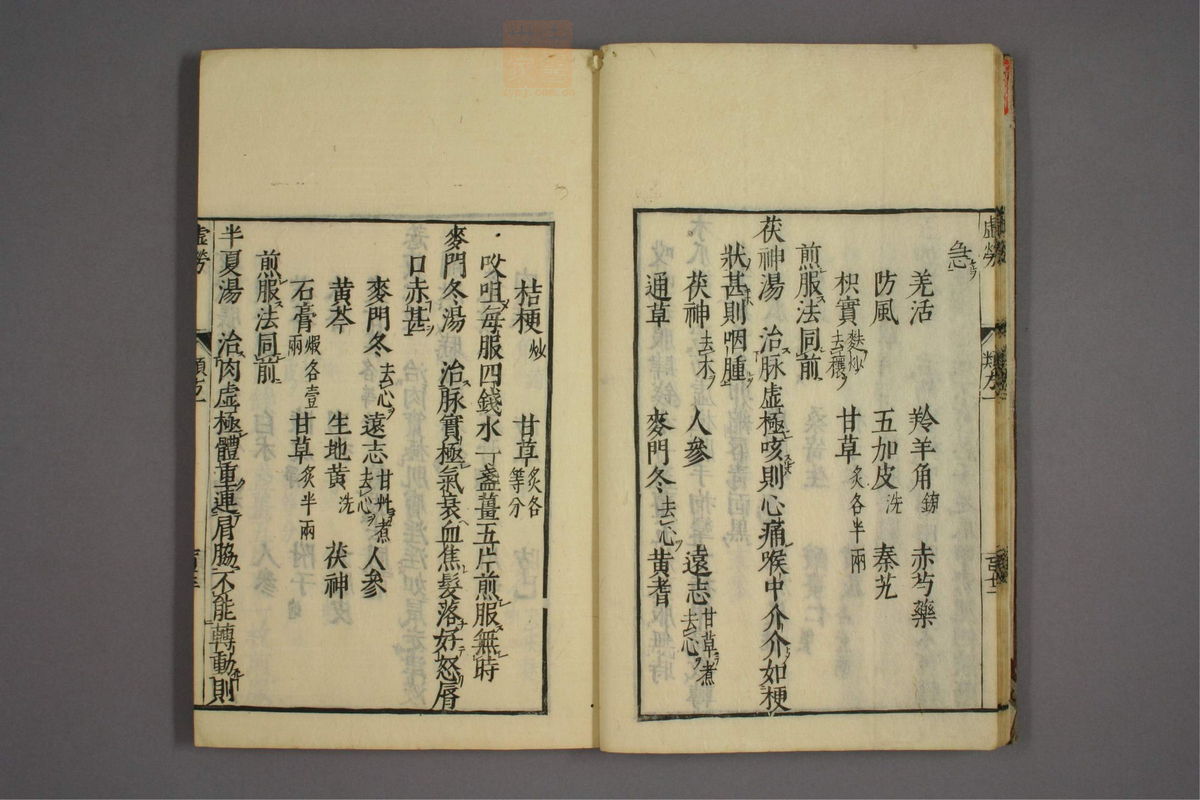 急
羗活　羚羊角鎊　赤芍藥
防風　五加皮洗　秦艽
枳實麩炒去穰　甘草炙各半兩
煎服法同前
茯神湯　治脉虛極咳則心痛喉中介介如梗
狀甚則咽腫
茯神去木　人參　遠志甘草煮去心
通草　麥門冬去心　黄耆
桔梗炒　甘草炙各等分
㕮咀每服四錢水一盞薑五片煎服無時
麥門冬湯　治脉實極氣衰血焦髮落好怒唇
口赤甚
麥門冬去心　遠志甘艸煮去心　人參
黄芩　生地黄洗　茯神
石膏煆各壹兩　甘草炙半兩
煎服法同前
半夏湯　治肉虛極體重連肩脇不能轉動則
虛勞